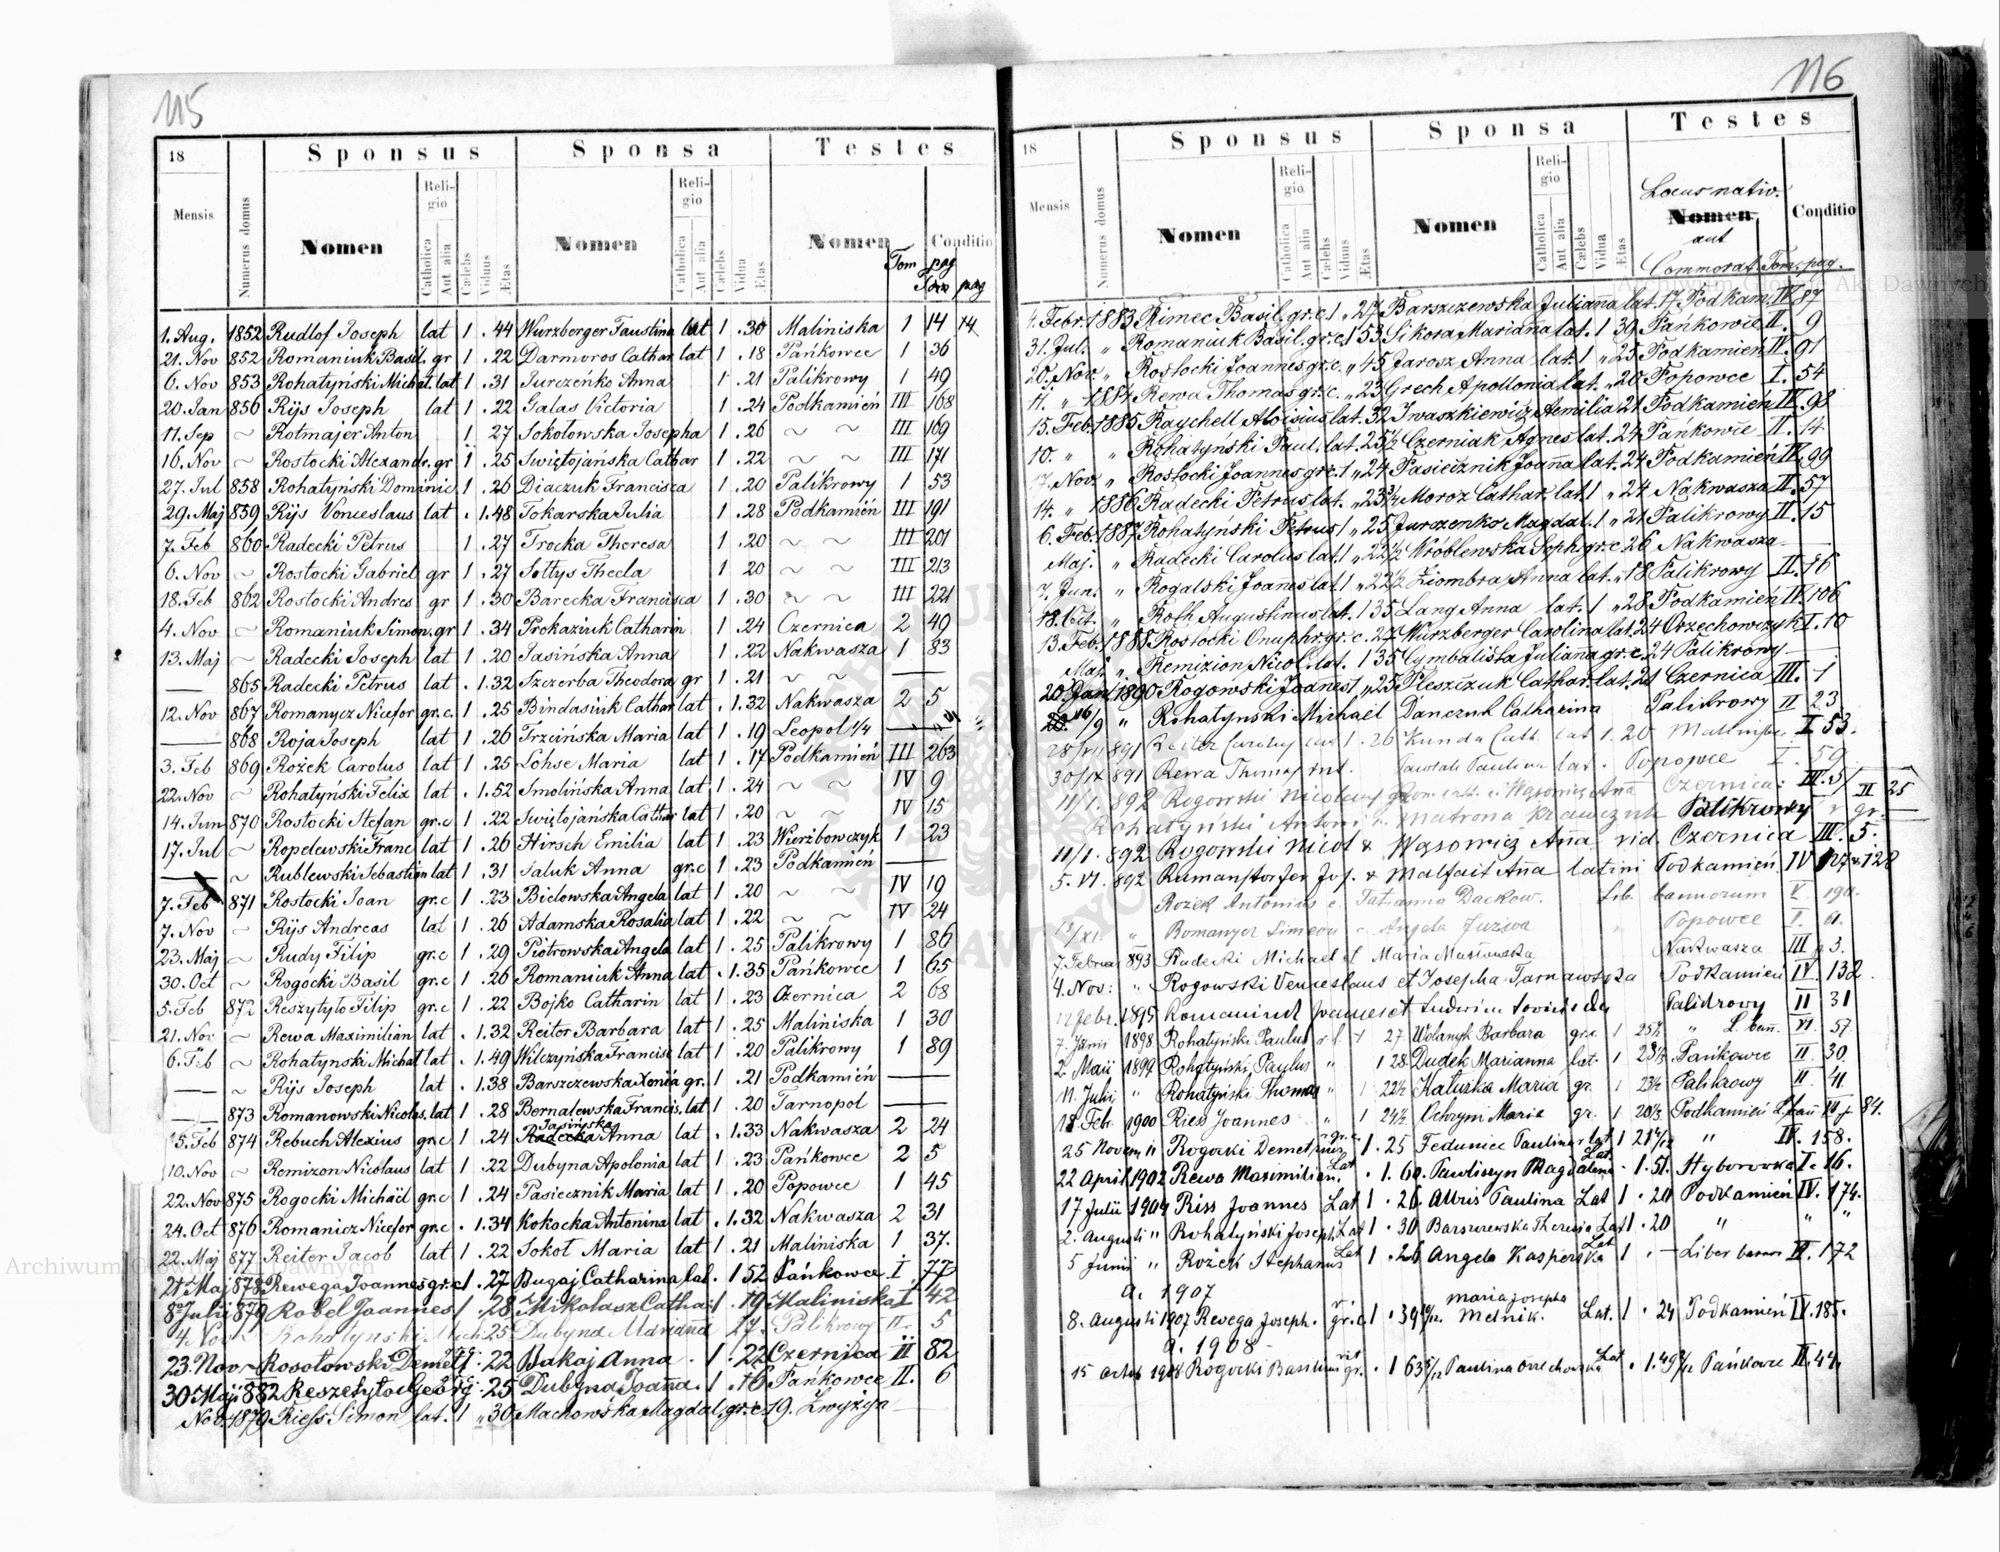 115
18
Sponsus
Sponsa
Testes
Mensis
Numerus domus
Nomen
Religio
Catholica
Aut alia
Cælebs
Viduus
Ætas
Nomen
Religio
Catholica
Aut alia
Cælebs
Vidua
Ætas
Nomen
Conditio
Tom pag
Tom pag
1. Aug. 1852 Rudlof Joseph lat 1 . 44 Wurzberger Faustina lat 1 . 30 Maliniska 1 14 14
21. Nov 852 Romaniuk Basil. gr 1 . 22 Darmoros Cathar lat 1 . 18 Pańkowce 1 36
6. Nov 853 Rohatyński Michał. lat 1 . 31 Jurczeńko Anna 1 . 21 Palikrowy 1 49
20. Jan 856 Ryś Joseph lat 1 . 22 Galas Victoria 1 . 24 Podkamień III 168
11. Sep ~ Rotmajer Anton 1 27 Sokołowska Josepha 1 . 26 ~ ~ III 169
16. Nov ~ Rostocki Alexandr. gr 1 . 25 Swiętojańska Cathar 1 . 22 ~ ~ III 171
27. Jul 858 Rohatyński Dominic 1 . 26 Diaczuk Francisca 1 . 20 Palikrowy 1 53
29. Maj 859 Ryś Venceslaus lat . 1 . 48 Tokarska Julia 1 . 28 Podkamień III 191
7. Feb 860 Radecki Petrus 1 . 27 Trocka Theresa 1 . 20 ~ ~ III 201
6. Nov ~ Rostocki Gabriel gr 1 . 27 Sołtys Thecla 1 20 ~ ~ III 213
18. Feb 862 Rostocki Andres gr 1 . 30 Barecka Francisca 1 . 30 ~ ~ III 221
4. Nov ~ Romaniuk Simon. gr 1 . 34 Prokaziuk Catharin 1 . 24 Czernica 2 40
13. Maj ~ Radecki Joseph lat 1 . 20 Jasińska Anna 1 . 22 Nakwasza 1 83
— 865 Radecki Petrus lat . 1 . 32 Szczerba Theodora gr 1 . 21 ~ ~ —
12. Nov 867 Romanycz Nicefor gr. c. 1 . 25 Bindasiuk Cathar lat . 1 . 32 Nakwasza 2 5
— 868 Roja Joseph lat 1 . 26 Trzcińska Maria lat 1 . 19 Leopol
3. Feb 869 Rożek Carolus lat 1 . 25 Lohse Maria lat 1 . 17 Podkamień III 263
22. Nov ~ Rohatyński Felix lat . 1 . 52 Smolińska Anna lat 1 . 24 ~ ~ IV 9
14. Jun 870 Rostocki Stefan gr. c 1 . 22 Swiętojańska Cathar lat 1 . 20 ~ ~ IV 15
17. Jul ~ Ropelewski Franc lat 1 . 26 Hirsch Emilia lat 1 . 23 Wierzbowczyk 1 23
— ~ Rublewski Sebastian lat 1 . 31 Saluk Anna gr. c 1 . 23 Podkamień —
7. Feb 871 Rostocki Joan gr. c 1 . 23 Bielowska Angela lat 1 . 20 ~ ~ IV 19
7. Nov ~ Ryś Andreas lat 1 . 26 Adamska Rosalia lat 1 . 22 ~ ~ IV 24
23. Maj ~ Rudy Filip gr. c 1 . 29 Piotrowska Angela lat 1 . 25 Palikrowy 1 86
30. Oct ~ Rogocki Basil gr. c 1 . 26 Romaniuk Anna lat . 1 . 35 Pańkowce 1 65
5. Feb 872 Reszytyło Filip gr. c 1 . 22 Bojko Catharin lat 1 . 23 Czernica 2 68
21. Nov ~ Rewa Maximilian lat . 1 . 32 Reiter Barbara lat 1 . 25 Maliniska 1 30
6. Feb ~ Rohatynski Michał lat . 1 . 49 Wilczynska Francisc lat 1 . 20 Palikrowy 1 89
— ~ Ryś Joseph lat . 1 . 38 Barszczewska Xenia gr. 1 . 21 Podkamień —
— 873 Romanowski Nicolas. lat 1 . 28 Bernalewska Francis. lat 1 . 20 Tarnopol —
15. Feb 874 Rebuch Alexius gr. c 1 . 24 Radecka Jasińska Anna lat . 1 . 33 Nakwasza 2 24
10. Nov ~ Remizon Nicolaus lat 1 . 22 Dubyna Apolonia lat 1 . 23 Pańkowce 2 5
22. Nov 875 Rogocki Michael gr. c 1 . 24 Pasiecznik Maria lat 1 . 20 Popowce 1 45
24. Oct 876 Romanicz Nicefor gr. c . 1 . 34 Kokocka Antonina lat . 1 . 32 Nakwasza 2 31
22. Maj 877 Reiter Jacob lat 1 . 22 Sokoł Maria lat 1 . 21 Maliniska 1 37.
21 Maj 878 Rewega Joannes gr. c 1 . 27 Bugaj Catharina lat . 1 52 Pańkowce I 77
8 Julii 879 Robel Joannes 1 . 28 Mikolasz Catha 1 . 19 Maliniska I 42
4. Nov Rohatynski Mich 25 Dubyna Marianna 27. Palikrowy II. 5
23. Nov ~ Rosołowski Demetr. . 22 Bakaj Anna . 1 . 22 Czernica II 82
30 Maji 882 Reszetyło Georg. . 25 Dubyna Joanna . 1 . 16 Pańkowce II. 6
Nov. 1879 Riess Simon lat. 1 „ 30 Machowska Magdal. gr. c. 19. Zwyżyn —
116
18
Sponsus
Sponsa
Testes
Mensis
Numerus domus
Nomen
Religio
Catholica
Aut alia
Cælebs
Viduus
Ætas
Nomen
Religio
Catholica
Aut alia
Cælebs
Vidua
Ætas
Locus nativ.
Nomen
aut
Commorat. Tom. pag.
Conditio
4. Febr. 1883 Rimec Basil. gr. c. 1 „ 27 Barszczewska Juliana lat. 17. Podkam. IV 87
31. Jul. „ Romaniuk Basil. gr. c. 1 53 Sikora Marianna lat. 1 39 Pańkowce II. 9
20. Nov. „ Rostocki Joannes gr. c. „ 45 Jarosz Anna lat. 1 „ 25 Podkamień IV. 91
11. „ 1884 Rewa Thomas gr. c. „ 23 Grech Apollonia lat. „ 20 Popowce I. 54
15. Feb. 1885 Raychell Aloisius lat. 32 Iwaszkiewicz Aemilia 21 Podkamień IV. 98
10. „ „ Rohatyński Paul. lat. 25½ Czerniak Agnes lat. 24 Pańkowce II. 14
17. Nov. „ Rostocki Joannes gr. c. 1 „ 24 Pasiecznik Joanna lat. 24 Podkamień IV. 99
14. „ 1886 Radecki Petrus lat. „ 23¾ Moroz Cathar. lat. 1 „ 24 Nakwasza II. 57
6. Feb. 1887 Rohatyński Petrus 1 „ 25 Jurszenko Magdal. 1 „ 21 Palikrowy II. 15
Maj. „ Radecki Carolus lat. 1 „ 22½ Wróblewska Soph. gr. c. 26 Nakwasza —
7. Jun. „ Rogalski Joannes lat. 1 „ 22½ Ziombra Anna lat. „ 18 Palikrowy II. 16
18. Oct. „ Roth Augustinus lat. 1 35 Lang Anna lat. 1 „ 28 Podkamień IV. 106
13. Feb. 1888 Rostocki Onuphr. gr. c. 27 Wurzberger Carolina lat. 24 Orzechowczyk I. 10
Maj. „ Remizion Nicol. lat. 1 35 Cymbalista Julianna gr. c. 24 Palikrowy —
20. Jan. 1890 Rogowski Joannes 1 „ 25 Pleszczuk Cathar. lat. 21 Czernica III. 1
16/9 „ Rohatynski Michael Danczuk Catharina Palikrowy II 23
28/VII 891 Reiter 1. 26 Kunda Cath. lat 1. 20 Maliniska I 53.
30/IX 891 Rewa Thomas Pawlak Paulina lat. Popowce I. 59
11/1. 892 Rogowski Nicolaus Wąsowicz Anna Czernica: III. 5/
Rohatyński Antoni Matrona Krawczuk Palikrowy II 25
11/1. 892 Rogowski Nicol & Wąsowicz Anna vid. Czernica III. 5.
5. VI. 892 Rumanstorfer Jos. & Malfait Anna latini Podkamień IV 127 & 128
Rożek Antonius c. Tatianna Dackow. Lib. bannorum V. 190.
13/XI „ Romanycz Simeon Angela Juziwa Popowce I. 61.
7. Februar 893 Radecki Michael et Maria Masłowska Nakwasza III 3.
4. Nov: „ Rogowski Venceslaus et Josepha Tarnawska Podkamień IV. 132
12 febr. 1895 Romaniuk Joannes et Ludwina Palikrowy II 31
7. Junii 1898 Rohatyński Paulus r. l. 1 27. Wolanyk Barbara gr. c. 1 25½ „ L. bann. VI. 57.
2 Maii 1899 Rohatyński Paulus „ 1 28. Dudek Marianna lat. 1 23½ Pańkowce II. 30.
11. Julii „ Rohatyński Thomas „ 1 22½ Kałuzka Maria gr. 1 23½ Palikrowy II. 41
18. Febr. 1900 Riess Joannes „ 1 24½ Ochrym Maria gr. 1 20½ Podkamień L. bann. 84.
25 Novem. „ Rogocki Demetrius gr. c. 1 . 25 Fedunice Paulina r. lat. 1 21 „ IV. 158.
22 April 1902 Rewa Maximilian. Lat . 1. 60. Pawliszyn Magdalena Lat . 1. 51. Hyborowka I. 16.
17 Julii 1904 Riss Joannes Lat 1 . 26 Albus Paulina Lat 1 . 20 Podkamień IV. 174.
2. Augusti „ Rohatyński Joseph Lat 1 . 30 Barszczewska Theresia Lat 1 . 20 „ „ „
5 Junii „ Rożek Stephanus Lat 1 . 26 Angela Kasperska Lat 1 . — Liber bannor VI. 172
A. 1907
8. Augusti 1907 Rewega Joseph. gr. c. 1 . 39 Maria Josepha Melnik. Lat. 1 . 24 Podkamień IV. 185.
A. 1908
15 Octob 1908 Rogocki Basilius rit gr. . 1 63 Paulina Orzechowska Lat . 1. 49 Pańkowce II. 44.
Archiwum Główne Akt Dawnych
Archiwum Główne Akt Dawnych